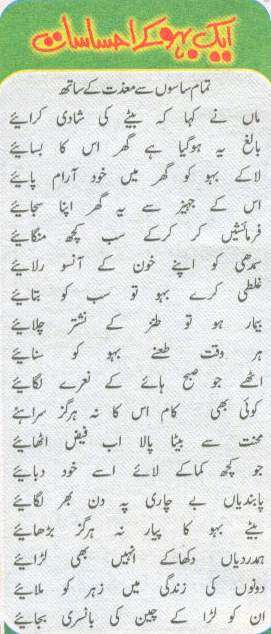 ایک بہو کے احساسات
تمام ساسوں سے معذت کے ساتھ
ماں نے کہا کہ بیٹے کی شادی کرائیے
بالغ یہ ہوگیا ہے گھر اس کا بسائیے
لاکے بہو کو گھر میں خود آرام پایئے
اس کے جہیز سے یہ گھر اپنا سجائیے
فرمائشیں کر کرکے سب کچھ منگائیے
سمدھی کو اپنے خون کے آنسو رلائیے
غلطی کرے بہو تو سب کو بتائیے
بیمار ہو تو طنز کے نشتر چلائیے
ہر وقت طعنے بہو کو سنائیے
اٹھے جو صبح ہائے کے نعرے لگائیے
کوئی بھی کام اس کا نہ ہرگز سراہئے
محنت سے بیٹا پالا اب فیض اٹھائیے
جو کچھ کماکے لائے اسے خود دبائیے
پابندیاں بے چاری پہ دن بھر لگائیے
بیٹے بہو کا پیار نہ ہرگز بڑھائیے
ہمدردیاں دکھاکے انہیں بھی لڑائیے
دونوں کی زندگی میں زہر کو ملائیے
ان کو لڑا کے چین کی بانسری بجائیے